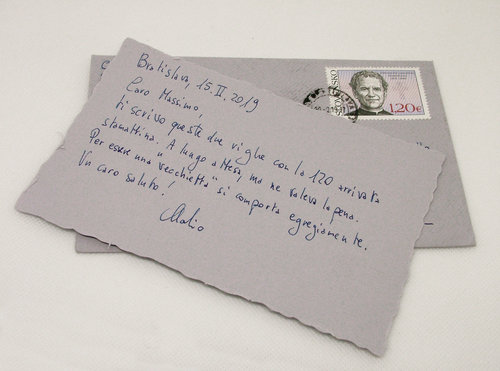 Bratislava, 15.II.2019
Caro Massimo,
ti scrivo queste due righe con la 120 arrivata
stamattina. A lungo attesa, ma ne valeva la pena.
Per essere una "vecchietta" si comporta egregiamente.
Un caro saluto!
SLOVENSKO
1,20€